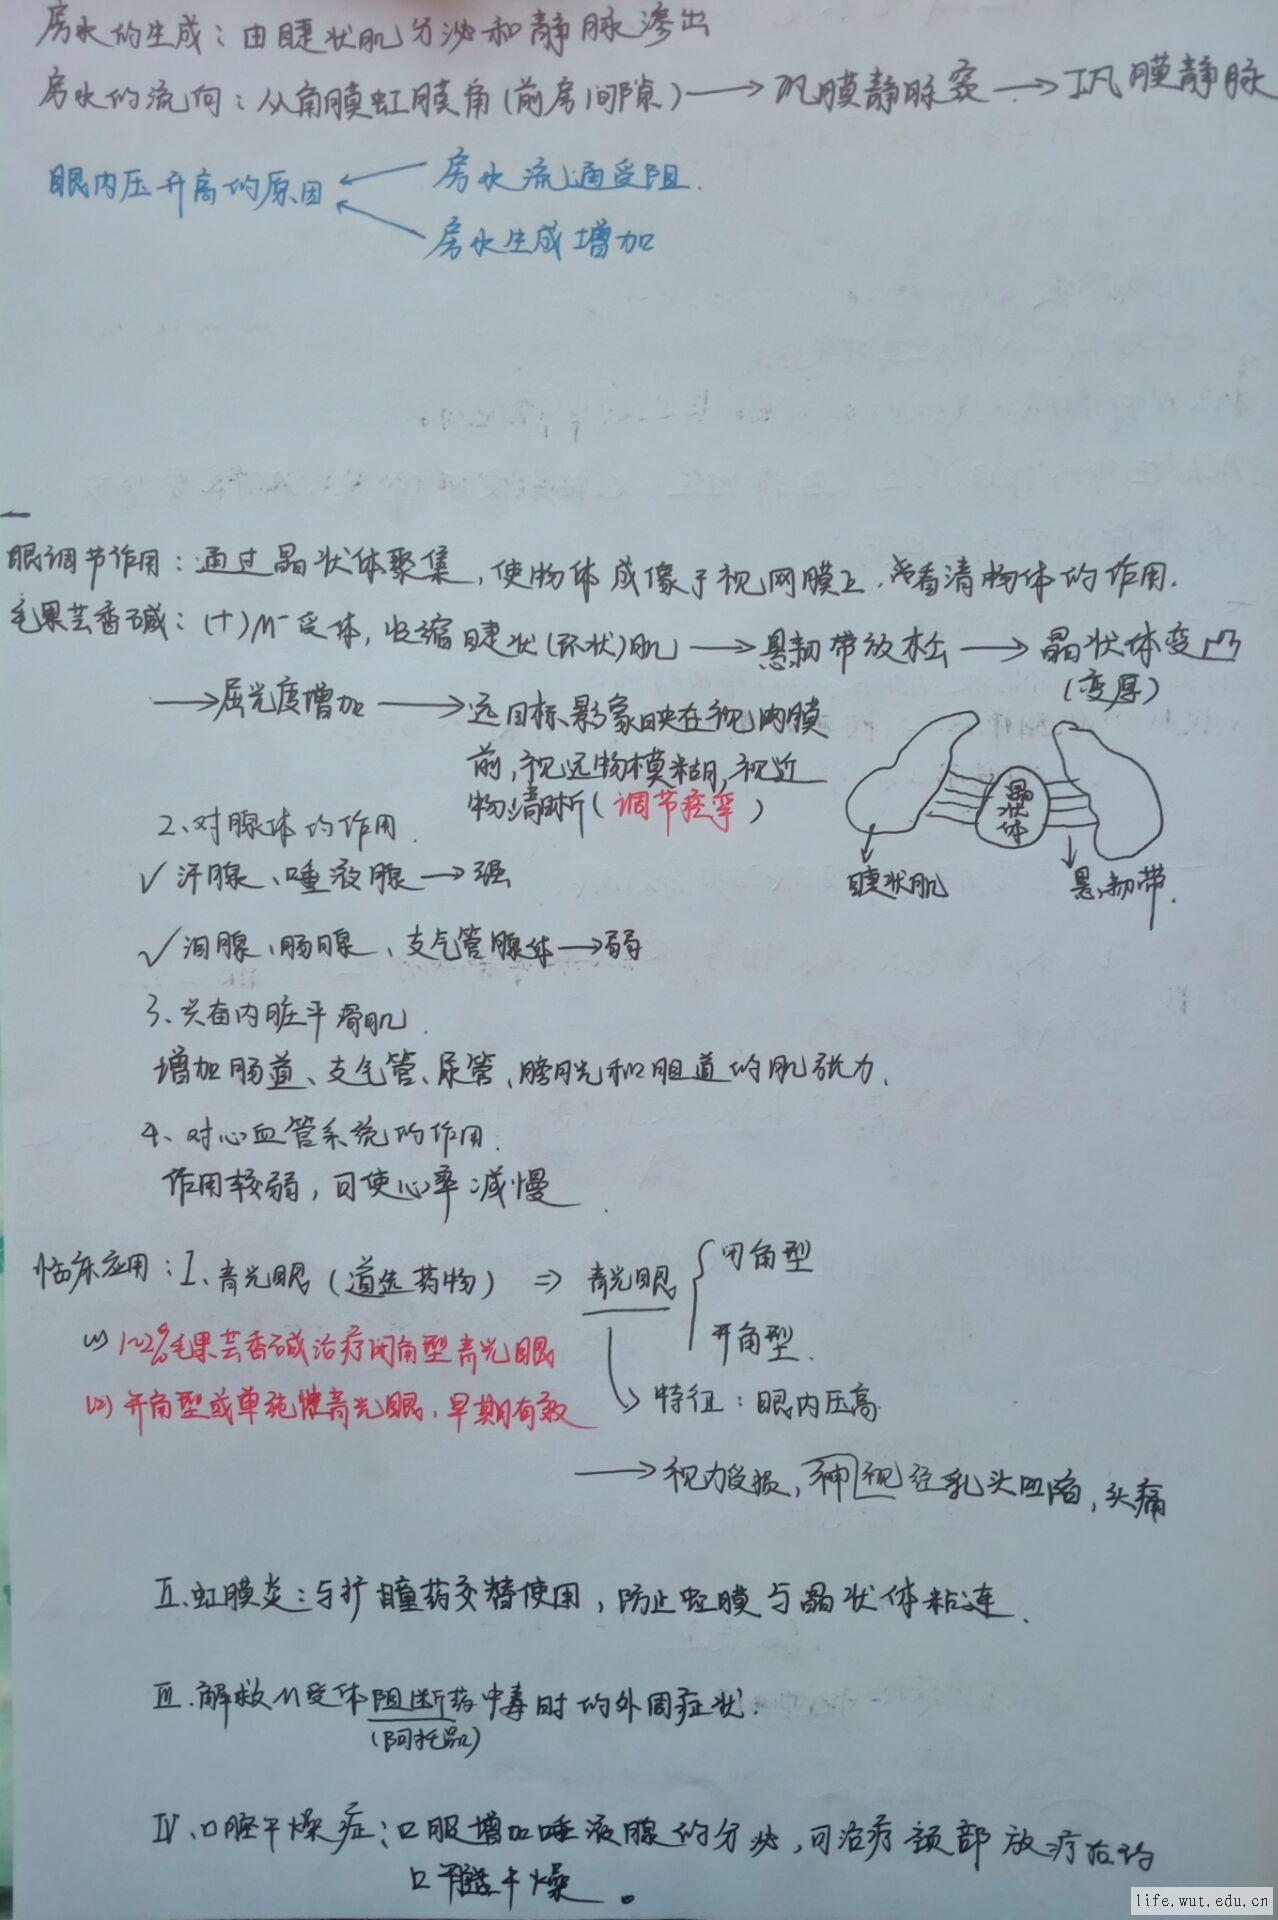 房水的生成：由睫状肌分泌和静脉渗出
房水的流向：从角膜虹膜角(前房间隙)→巩膜静脉窦→巩膜静脉
眼内压升高的原因
房水流通受阻.
房水生成增加
眼调节作用：通过晶状体聚集,使物体成像于视网膜上,看清物体的作用.
毛果芸香碱：(+)M-受体,收缩睫状(环状)肌→悬韧带放松→晶状体变凸
(变厚)
→屈光度增加→远目标影象映在视网膜
前,视远物模糊,视近
物清晰(调节痉挛)
晶状体
睫状肌
悬韧带.
2、对腺体的作用.
✓汗腺、唾液腺→强
✓泪腺、肠腺、支气管腺体→弱
3、兴奋内脏平滑肌.
增加肠道、支气管、尿管、膀胱和胆道的肌张力.
4、对心血管系统的作用.
作用较弱,可使心率减慢
临床应用：I、青光眼(首选药物)⇒青光眼{闭角型
开角型.
(1)1~2%毛果芸香碱治疗闭角型青光眼
(2)开角型或单纯性青光眼,早期有效
特征：眼内压高
→视力受损,神视经乳头凹陷,头痛
Ⅱ.虹膜炎：与扩瞳药交替使用,防止虹膜与晶状体粘连.
Ⅲ.解救M受体阻断药中毒时的外周症状.
(阿托品)
Ⅳ、口腔干燥症：口服增加唾液腺的分泌,可治疗颈部放疗后的
口腔干燥。
life.wut.edu.cn